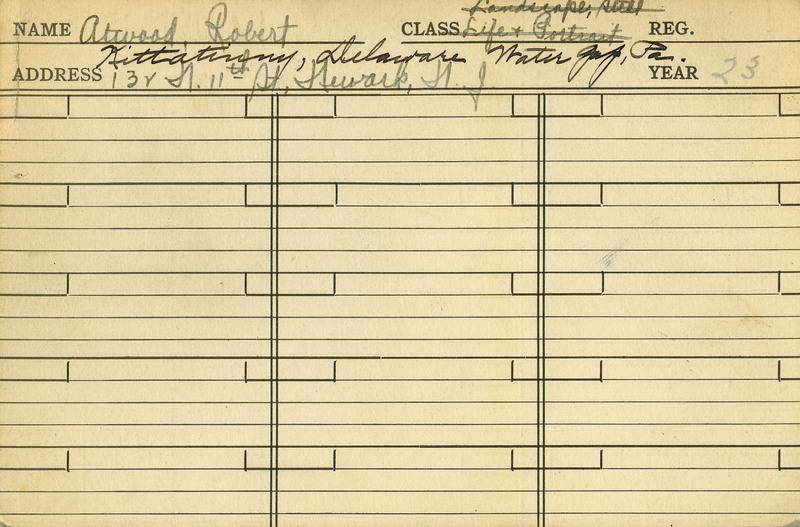 Landscape, Still
NAME Atwood, Robert CLASS Life & Portrait REG.
Kittatinny, Delaware Water Gap, Pa.
ADDRESS 132 N. 11th St, Newark, N. J. YEAR 23